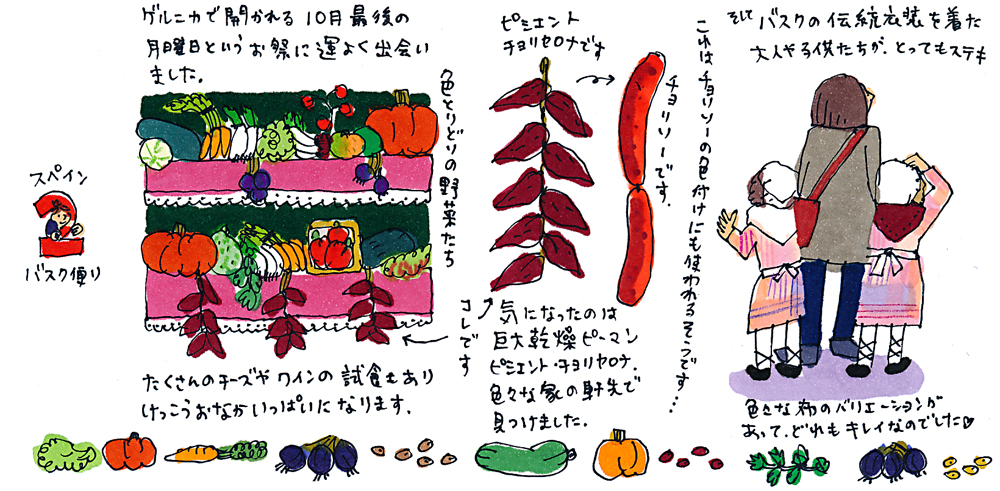 スペイン
2
バスク便り
ゲルニカで開かれる10月最後の
月曜日というお祭に運よく出会い
ました。
色とりどりの野菜たち
たくさんのチーズやワインの試食もあり
けっこうおなかいっぱいになります。
コレです
ピミエント
チョリセロナです
チョリソーです。
気になったのは
巨大乾燥ピーマン
ピミエント・チョリセロナ。
色々な家の軒先で
見つけました。
これはチョリソーの色付けにも使われるそうです…
そしてバスクの伝統衣装を着た
大人や子供たちが、とってもステキ
色々な布のバリエーションが
あって、どれもキレイなのでした♡